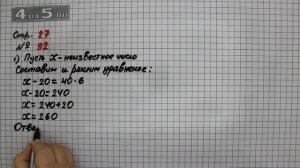 4 на 5.ru
Стр. 27
№ 92
1) Пусть x-неизвестное число
Составим и решим уравнение:
x-20=40·6
x-20=240
x=240+20
x=260
Отве